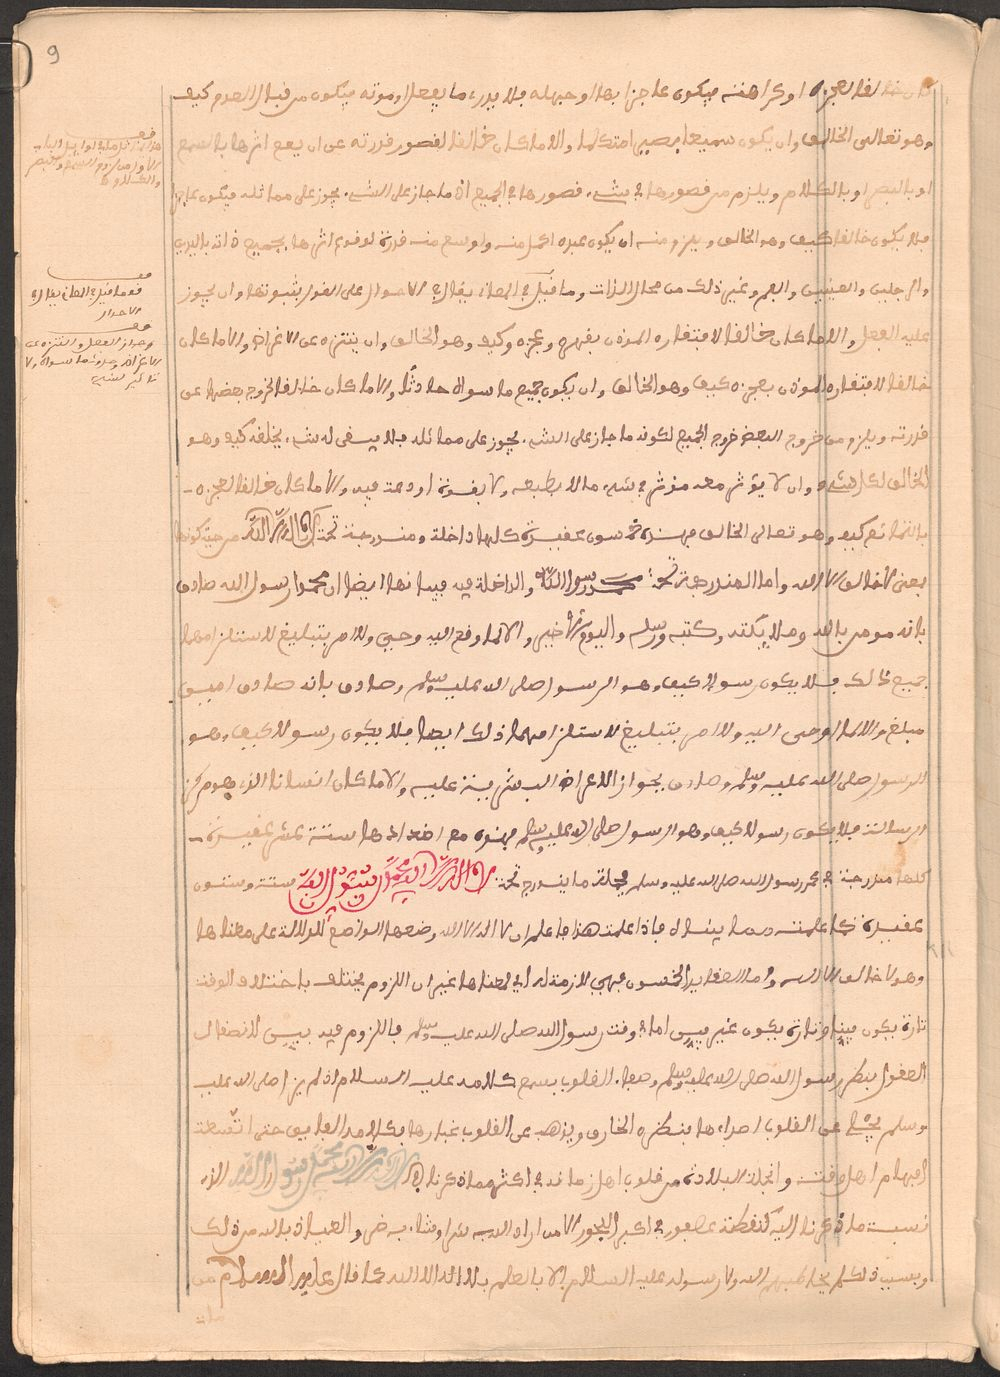 9
كان خالقا لعجزه او كراهته فيكون عاجزا بها او جهله فلا يدرى ما يفعل او موته فيكون من قبيل العدم كيف
وهو تعالى الخالق وان يكون سميعا بصيرا متكلما والا ما كان خالقا لقصور قدرته عن ان يقع اثرها بالسمع
او بالبصر او بالكلام ويلزم من قصورها في شيء قصورها في الجميع اذ ما جاز على الشيء يجوز على مماثله فيكون عاجزا
فلا يكون خالقا كيف وهو الخالق ويلزم منه ان يكون غيره اكمل منه واوسع منه قدرة لوقوع اثرها بجميع ذاته باليدين
والرجلين والعينين والفم وغير ذلك من محال الذات وما قيل في المعاني يقال في الاحوال على القول بثبوتها وان يجوز
عليه الفعل والا ما كان خالقا لافتقاره المؤذن بقهره وعجزه وكيف وهو الخالق وان يتنزه عن الاغراض والا ما كان
خالقا لافتقاره المؤذن بعجزه كيف وهو الخالق وان يكون جميع ما سواه حادثا والا ما كان خالقا لخروج بعضها عن
قدرته ويلزم من خروج البعض خروج الجميع لكونه ما جاز على الشيء يجوز على مماثله فلا يبقى له شيء يخلقه كيف وهو
الخالق لكل شيء وان لا يؤثر معه مؤثر في شيء ما لا بطبعه ولا بقوة اودعت فيه والا ما كان خالقا لعجزه
بالتمانع كيف وهو تعالى الخالق فهذه خمسون عقيدة كلها داخلة ومندرجة تحت لا اله الا الله من حيث كونها
بمعنى لا خالق الا الله واما المندرجة تحت محمد رسول الله والداخلة فيه فبيانها ايضا ان محمدا رسول الله صادق
بانه مومن بالله وملائكته وكتبه ورسله واليوم الاخر والا لما وقع اليه وحي ولا امر بتبليغ لاستلزامهما
جميع ذلك فلا يكون رسولا كيف وهو الرسول صلى الله عليه وسلم وصادق بانه صادق امين
مبلغ والا لما اوحى اليه ولا امر بتبليغ لاستلزامهما ذلك ايضا فلا يكون رسولا كيف وهو
الرسول صلى الله عليه وسلم وصادق بجواز الاعراض البشرية عليه والا ما كان انسانا الذي هو مركز
الرسالة فلا يكون رسولا كيف وهو الرسول صلى الله عليه وسلم فهذه مع اضدادها ستة عشر عقيدة
كلها مندرجة في محمد رسول الله صلى الله عليه وسلم فجملة ما يندرج تحت لا اله الا الله محمد رسول الله ستة وستون
عقيدة كما علمت مما ينسال فاذا علمت هذا فاعلم ان لا اله الا الله وضعها الواضع للدلالة على معناها
وهو لا خالق الا الله واما العقايد الخمسون فهي لازمة له اي لمعناها غير ان اللزوم يختلف باختلاف الوقت
تارة يكون بينا وتارة يكون غير بين اما في وقت رسول الله صلى الله عليه وسلم فاللزوم فيه بين لانصقال
العقول بنظر رسول الله صلى الله عليه وسلم وصفاء القلوب بسمع كلامه عليه السلام اذ لم يزل صلى الله عليه
وسلم يجلي عن القلوب اصداءها بنظره الخارق ويذهب عن القلوب غبارها بكلامه الفايق حتى اتسعت
افهام اهل وقته وانجلت البلادة من قلوب اهل زمانه في اكثر مما ذكرنا في لا اله الا الله محمد رسول الله الذي
نسبة ما ذكرنا اليه كنقطة عصفور في اكبر البحور الا من اراد الله به شرا ومثله يرض والعياذ بالله من ذلك
وبسبب ذلك لم يخاطبهم الله ولا رسوله عليه السلام الا بالعلم بلا اله الا الله كما قال عليه السلام من
مات
قف
والبصر
قف
قف ما قيل في المعاني يقال في
الاحوال
قف
وجواز الفعل والتنزه عن
الاغراض وحدوث ما سواه ولا
تاثير لشيء